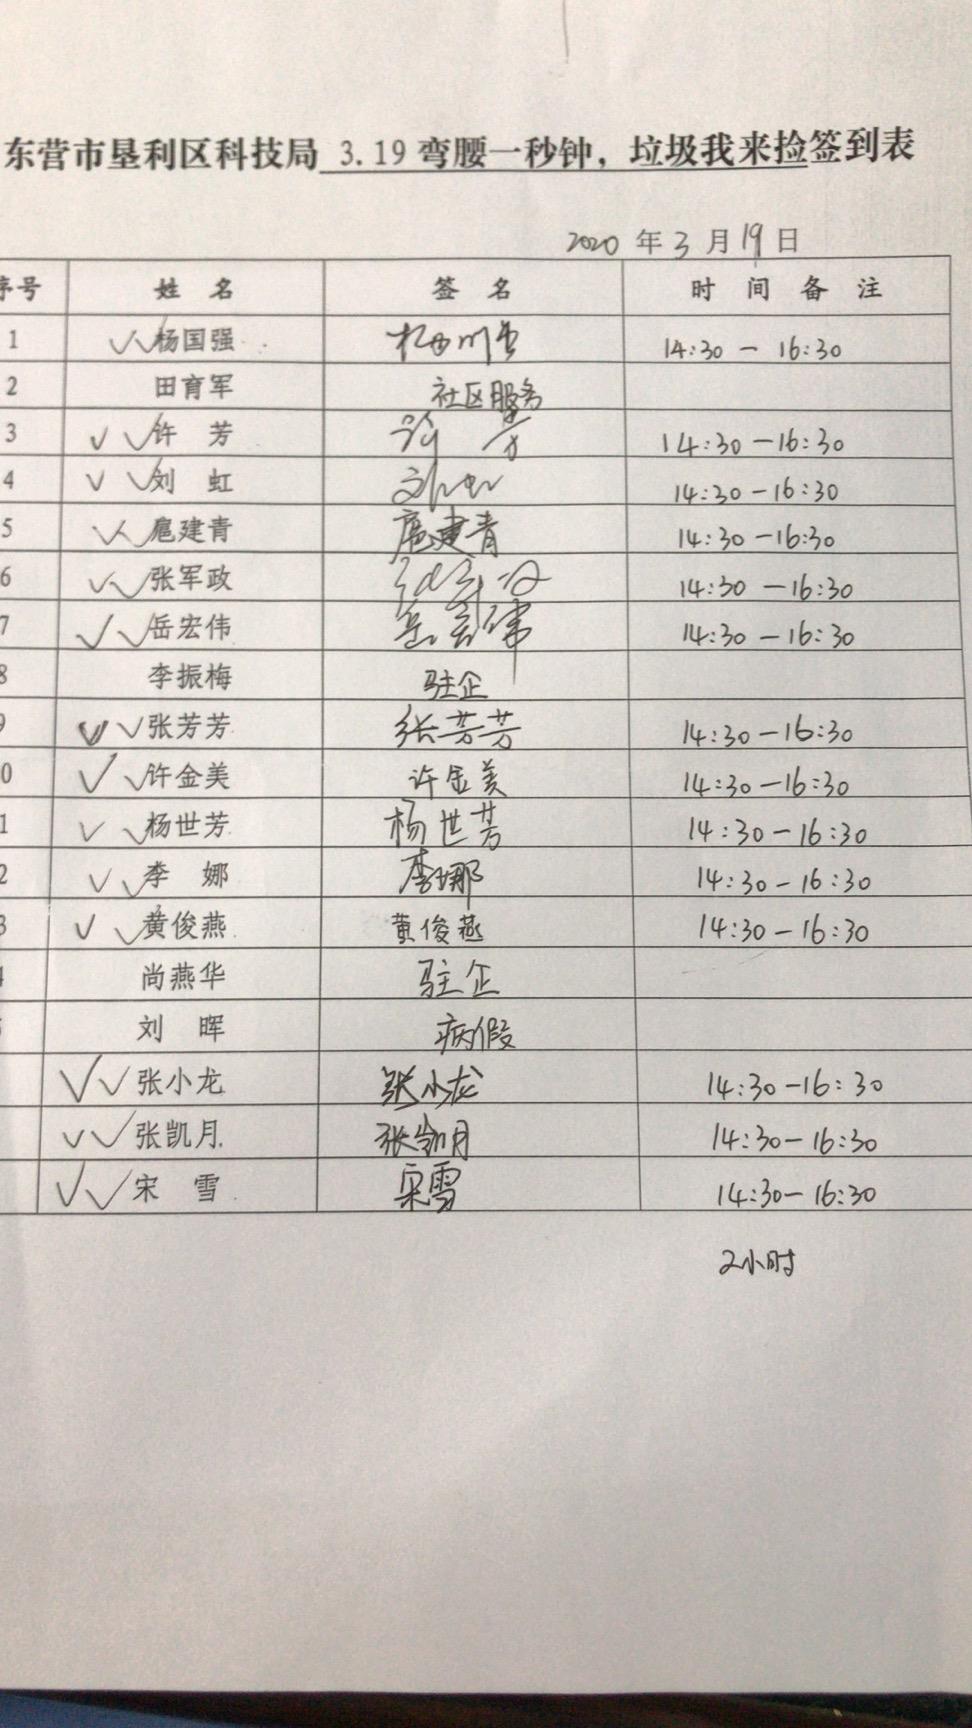 东营市垦利区科技局 3.19弯腰一秒钟，垃圾我来捡签到表
2020 年 3 月 19 日
序号 姓 名 签 名 时 间 备 注
1 杨国强 14:30 - 16:30
2 田育军 社区服务
3 许 芳 许 芳 14:30 - 16:30
4 刘 虹 刘虹 14:30 - 16:30
5 扈建青 扈建青 14:30 - 16:30
6 张军政 张军政 14:30 - 16:30
7 岳宏伟 岳宏伟 14:30 - 16:30
8 李振梅 驻企
9 张芳芳 张芳芳 14:30 - 16:30
0 许金美 许金美 14:30 - 16:30
1 杨世芳 杨世芳 14:30 - 16:30
2 李 娜 李娜 14:30 - 16:30
3 黄俊燕 黄俊燕 14:30 - 16:30
尚燕华 驻企
刘 晖 病假
张小龙 张小龙 14:30 - 16:30
张凯月 张凯月 14:30 - 16:30
宋 雪 宋雪 14:30 - 16:30
2小时